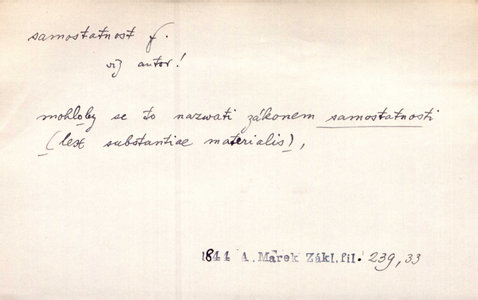 samostatnost f.
viz autor!
mohloby se to nazwati zákonem samostatnosti
(lex substantiae materialis),
1844 A. Marek Zákl. fil. 239, 33